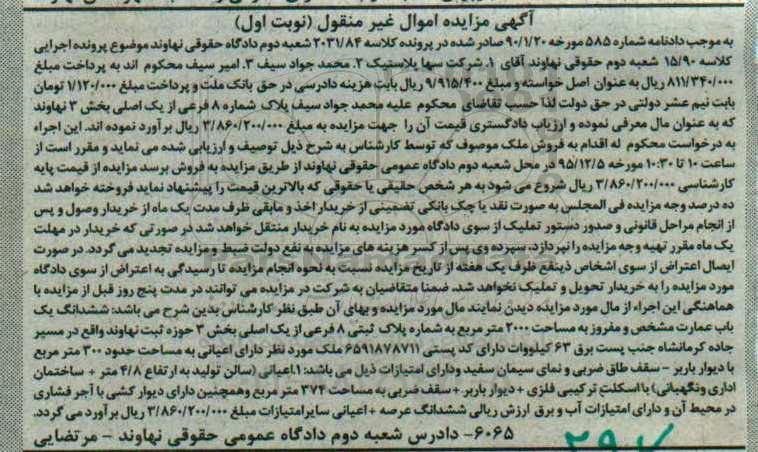 آگهی مزایده اموال غیر منقول (نوبت اول)
به موجب دادنامه شماره ۵۸۵ مورخه ۹۰/۱/۲۰ صادر شده در پرونده کلاسه ۲۰۳۱/۸۴ شعبه دوم دادگاه حقوقی نهاوند موضوع پرونده اجرایی
کلاسه ۱۵/۹۰ شعبه دوم حقوقی نهاوند آقای ۱. شرکت سها پلاستیک ۲. محمد جواد سیف ۳. امیر سیف محکوم اند به پرداخت مبلغ
۸۱۱/۳۴۰/۰۰۰ ریال به عنوان اصل خواسته و مبلغ ۹/۹۱۵/۴۰۰ ریال بابت هزینه دادرسی در حق بانک ملت و پرداخت مبلغ ۱/۱۲۰/۰۰۰ تومان
بابت نیم عشر دولتی در حق دولت لذا حسب تقاضای محکوم علیه محمد جواد سیف پلاک شماره ۸ فرعی از یک اصلی بخش ۳ نهاوند
که به عنوان مال معرفی نموده و ارزیاب دادگستری قیمت آن را جهت مزایده به مبلغ ۳/۸۶۰/۲۰۰/۰۰۰ ریال برآورد نموده اند. این اجراء
به درخواست محکوم له اقدام به فروش ملک موصوف که توسط کارشناس به شرح ذیل توصیف و ارزیابی شده می نماید و مقرر است از
ساعت ۱۰ تا ۱۰:۳۰ مورخه ۹۵/۱۲/۵ در محل شعبه دوم دادگاه عمومی حقوقی نهاوند از طریق مزایده به فروش برسد مزایده از قیمت پایه
کارشناسی ۳/۸۶۰/۲۰۰/۰۰۰ ریال شروع می شود به هر شخص حقیقی یا حقوقی که بالاترین قیمت را پیشنهاد نماید فروخته خواهد شد
ده درصد وجه مزایده فی المجلس به صورت نقد یا چک بانکی تضمینی از خریدار اخذ و مابقی ظرف مدت یک ماه از خریدار وصول و پس
از انجام مراحل قانونی و صدور دستور تملیک از سوی دادگاه مورد مزایده به نام خریدار منتقل خواهد شد در صورتی که خریدار در مهلت
یک ماه مقرر تهیه وجه مزایده را نپردازد، سپرده وی پس از کسر هزینه های مزایده به نفع دولت ضبط و مزایده تجدید می گردد. در صورت
ایصال اعتراض از سوی اشخاص ذینفع ظرف یک هفته از تاریخ مزایده نسبت به نحوه انجام مزایده تا رسیدگی به اعتراض از سوی دادگاه
مورد مزایده را به خریدار تحویل و تملیک نخواهد شد. ضمنا متقاضیان به شرکت در مزایده می توانند در مدت پنج روز قبل از مزایده با
هماهنگی این اجراء از مال مورد مزایده دیدن نمایند مال مورد مزایده و بهای آن طبق نظر کارشناس بدین شرح می باشد: ششدانگ یک
باب عمارت مشخص و مفروز به مساحت ۲۰۰۰ متر مربع به شماره پلاک ثبتی ۸ فرعی از یک اصلی بخش ۳ حوزه ثبت نهاوند واقع در مسیر
جاده کرمانشاه جنب پست برق ۶۳ کیلووات دارای کد پستی ۶۵۹۱۸۷۸۷۱۱ ملک مورد نظر دارای اعیانی به مساحت حدود ۳۰۰ متر مربع
با دیوار باربر - سقف طاق ضربی و نمای سیمان سفید ودارای امتیازات ذیل می باشد: ۱.اعیانی (سالن تولید به ارتفاع ۴/۸ متر + ساختمان
اداری ونگهبانی) با اسکلت ترکیبی فلزی + دیوار باربر + سقف ضربی به مساحت ۳۷۴ متر مربع وهمچنین دارای دیوار کشی با آجر فشاری
در محیط آن و دارای امتیازات آب و برق ارزش ریالی ششدانگ عرصه + اعیانی سایرامتیازات مبلغ ۳/۸۶۰/۲۰۰/۰۰۰ ریال برآورد می گردد.
۶۰۶۵- دادرس شعبه دوم دادگاه عمومی حقوقی نهاوند - مرتضایی